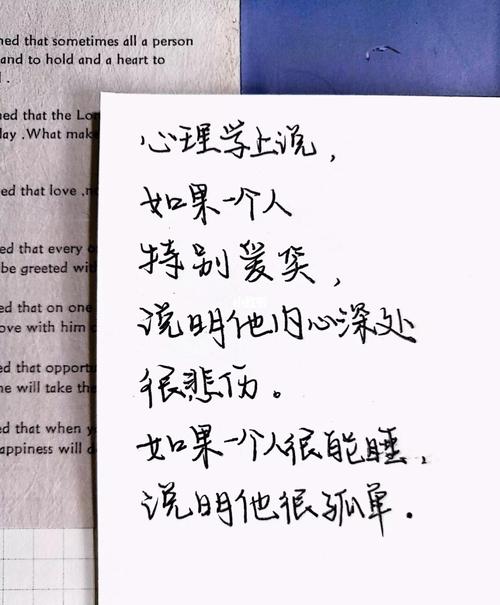 ned that sometimes all a person
and to hold and a heart to
ned that the
day .What
ed that love
ed that every
be greeted
ed that on one
ove with him
ed that
ne will take the
ed that when
appiness will
心理学上说，
如果一个人
特别爱笑，
说明他内心深处
很悲伤。
如果一个人很能睡，
说明他很孤单.